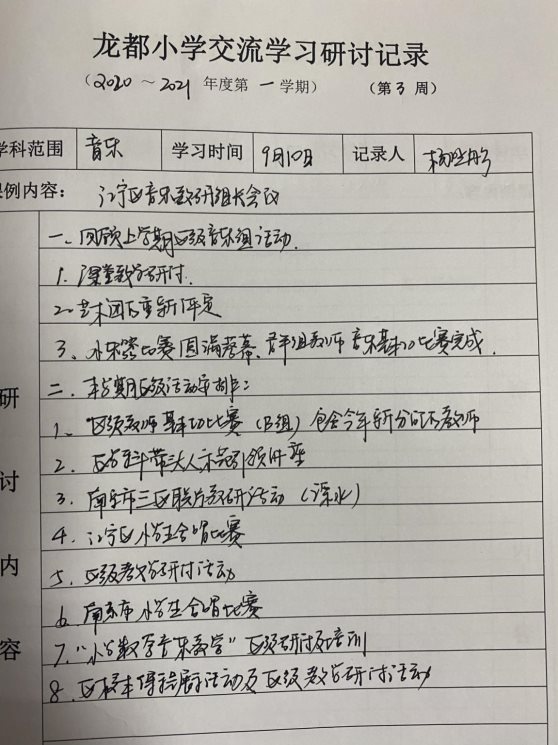 龙都小学交流学习研讨记录
（2020～2021年度第一学期） （第3周）
学科范围 音乐 学习时间 9月10日 记录人 杨
课例内容： 江宁区音乐教研组长会议
一、回顾上学期区级音乐组活动.
1. 课堂教学研讨.
2. 艺术团队重新评定
3、小乐器比赛圆满落幕、B组教师音乐基本功比赛完成.
二、本学期区级活动安排：
1、区级教师基本功比赛（B组）包含今年新分配教师
2. 区学科带头人示范引领课
3. 南京市三区联片教研活动（溧水）
4. 江宁区小学生合唱比赛
5. 区级教学研讨活动
6. 南京市小学生合唱比赛
7. "小学数字音乐教学"区级研讨及培训
8. 区校本 活动及区级教学研讨活动
研讨内容